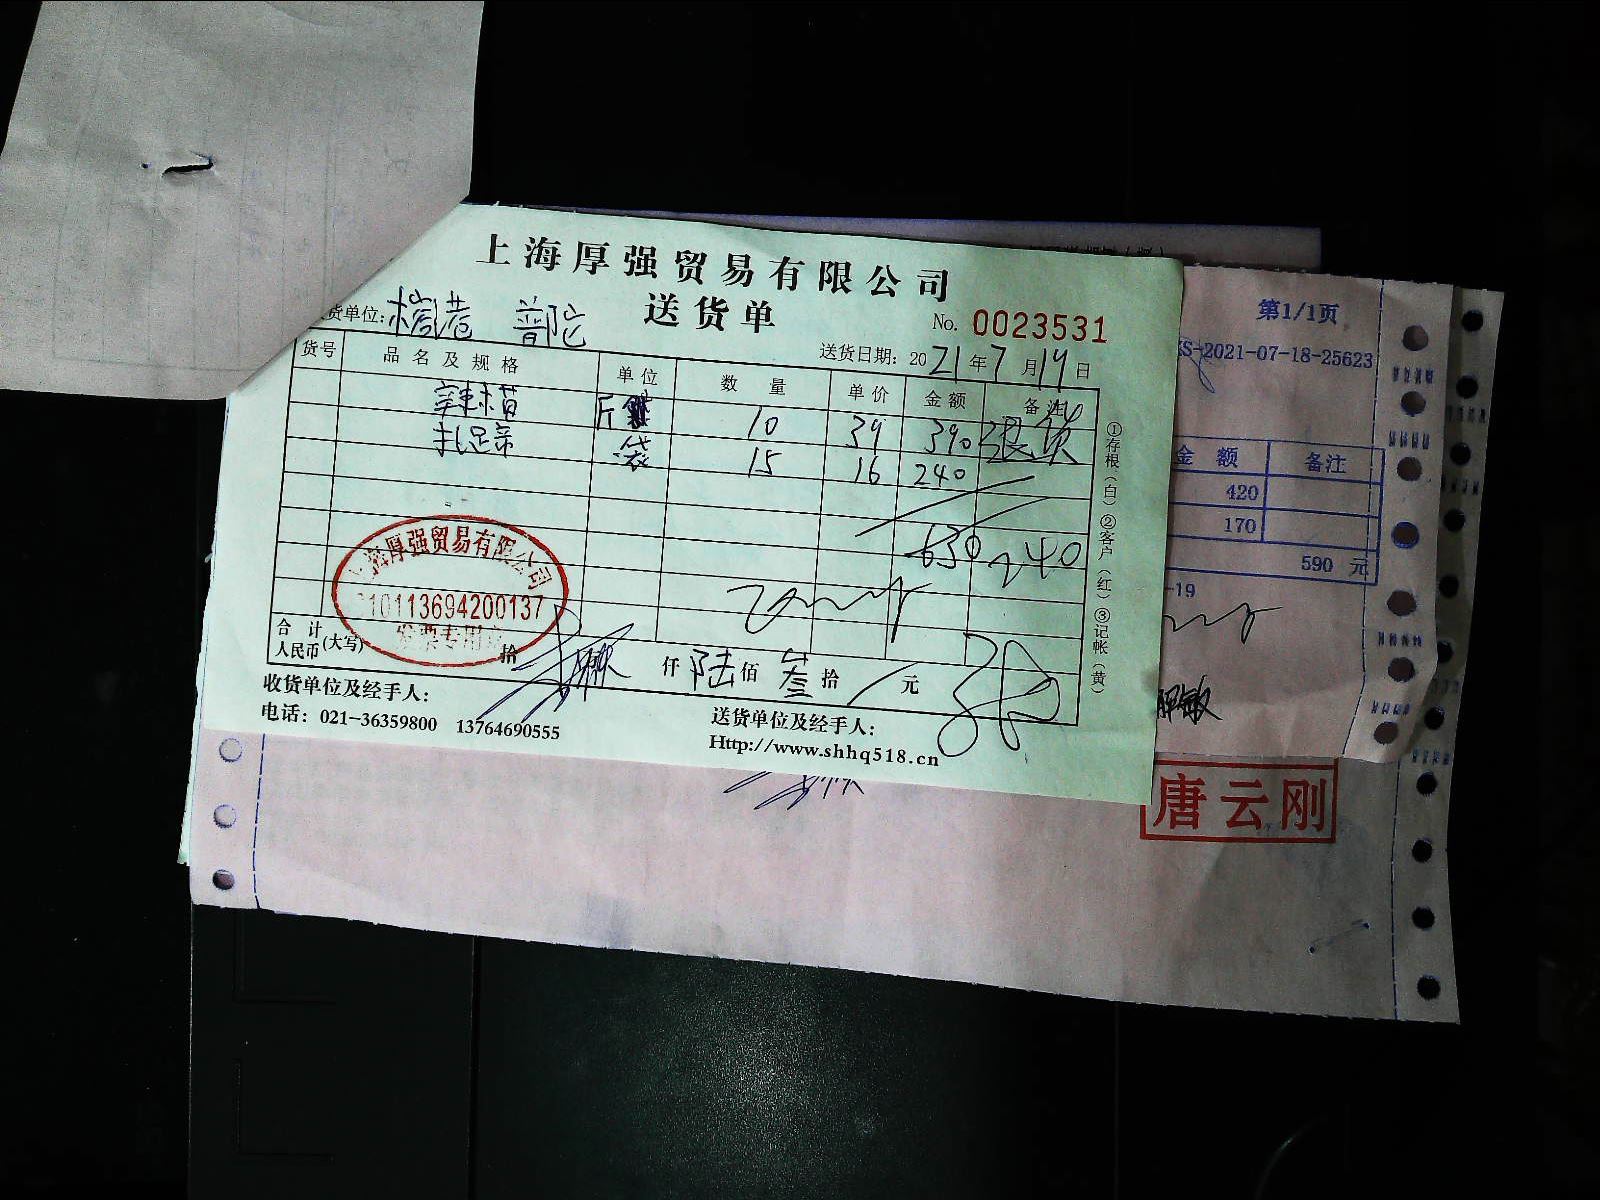 上海厚强贸易有限公司
送货单
No. 0023531
货单位: 普陀
送货日期: 2021年7月19日
货号 品名及规格 单位 数量 单价 金额 备注
斤 10 39 390 退货
袋 15 16 240
630 240
合计人民币(大写) 拾 仟 陆 佰 叁 拾 / 元
①存根(白)②客户(红)③记帐(黄)
上海厚强贸易有限公司
310113694200137
发票专用章
收货单位及经手人:
送货单位及经手人:
电话: 021-36359800 13764690555
Http://www.shhq518.cn
第1/1页
XS-2021-07-18-25623
金额 备注
420
170
590 元
-19
唐云刚